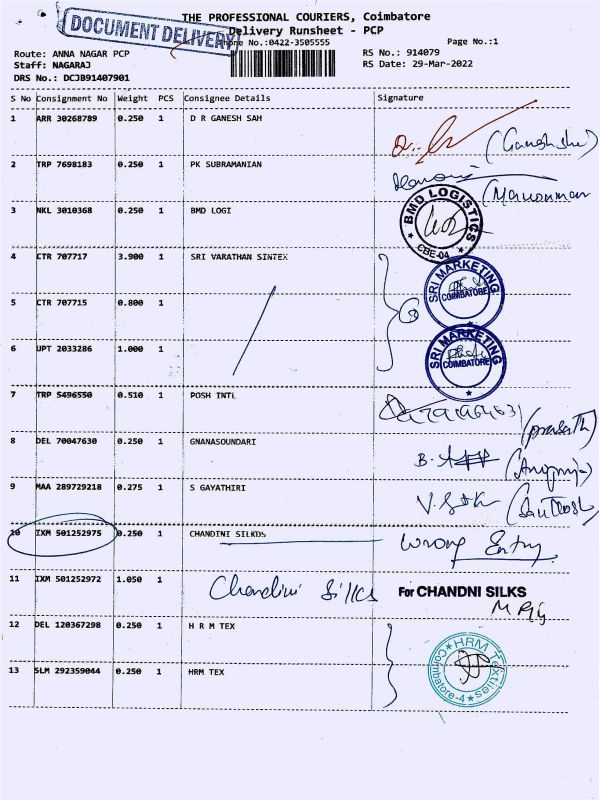 THE PROFESSIONAL COURIERS, Coimbatore
DOCUMENT DELIVERY
Delivery Runsheet - PCP
Phone No.:0422-3505555
Page No.:1
Route: ANNA NAGAR PCP
RS No.: 914079
Staff: NAGARAJ
RS Date: 29-Mar-2022
DRS No.: DCJB91407901
S No Consignment No Weight PCS Consignee Details Signature
1 ARR 30268789 0.250 1 D R GANESH SAH
2 TRP 7698183 0.250 1 PK SUBRAMANIAN
3 NKL 3010368 0.250 1 BMD LOGI
BMD LOGISTICS
CBE-04
4 CTR 707717 3.900 1 SRI VARATHAN SINTEX
SRI MARKETING
COIMBATORE
5 CTR 707715 0.800 1
6 UPT 2033286 1.000 1
SRI MARKETING
COIMBATORE
7 TRP 5496550 0.510 1 POSH INTL
8 DEL 70047630 0.250 1 GNANASOUNDARI
9 MAA 289729218 0.275 1 S GAYATHIRI
10 IXM 501252975 0.250 1 CHANDINI SILKDS Wrong Entry
11 IXM 501252972 1.050 1 Chandini Silks For CHANDNI SILKS
12 DEL 120367298 0.250 1 H R M TEX
HRM Textiles
Coimbatore-4
13 SLM 292359044 0.250 1 HRM TEX